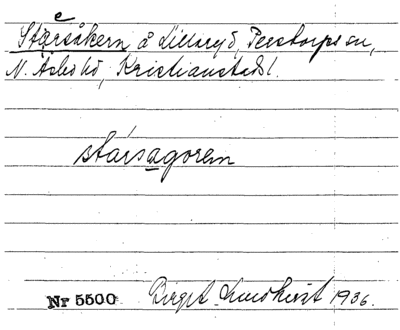 e
Stärsåkern å Lillaryd, Perstorps sn,
N. Åsbo hd, Kristianstads l.
stársagoren
Nr 5500 Birgit Lundkvist 1936.